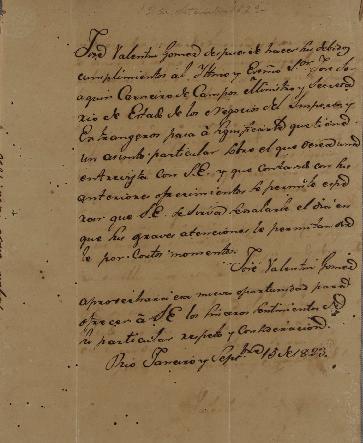 José Valentin Gomez despues de hacer sus debidos
cumplimientos al Ilmo y Exmo Sor José Joa-
quin Carneiro de Campos Ministro y Secreta
rio de Estado de los Negocios del Imperio y
Extrangeros pasa à significarle que tiene
un asunto particular sobre el que desea una
entrevista con S.E. y que contando con sus
anteriores ofrecimientos se permite espe
rar que S.E. se sirva señalarle el dia en
que sus graves atenciones le permitan oir
le por cortos momentos.
José Valentin Gomez
aprovechará esa nueva oportunidad para
ofrecer à S.E. los sinceros sentimientos de
su particular respeto y consideracion.
Rio Janeiro y Sepbre 15 de 1823.